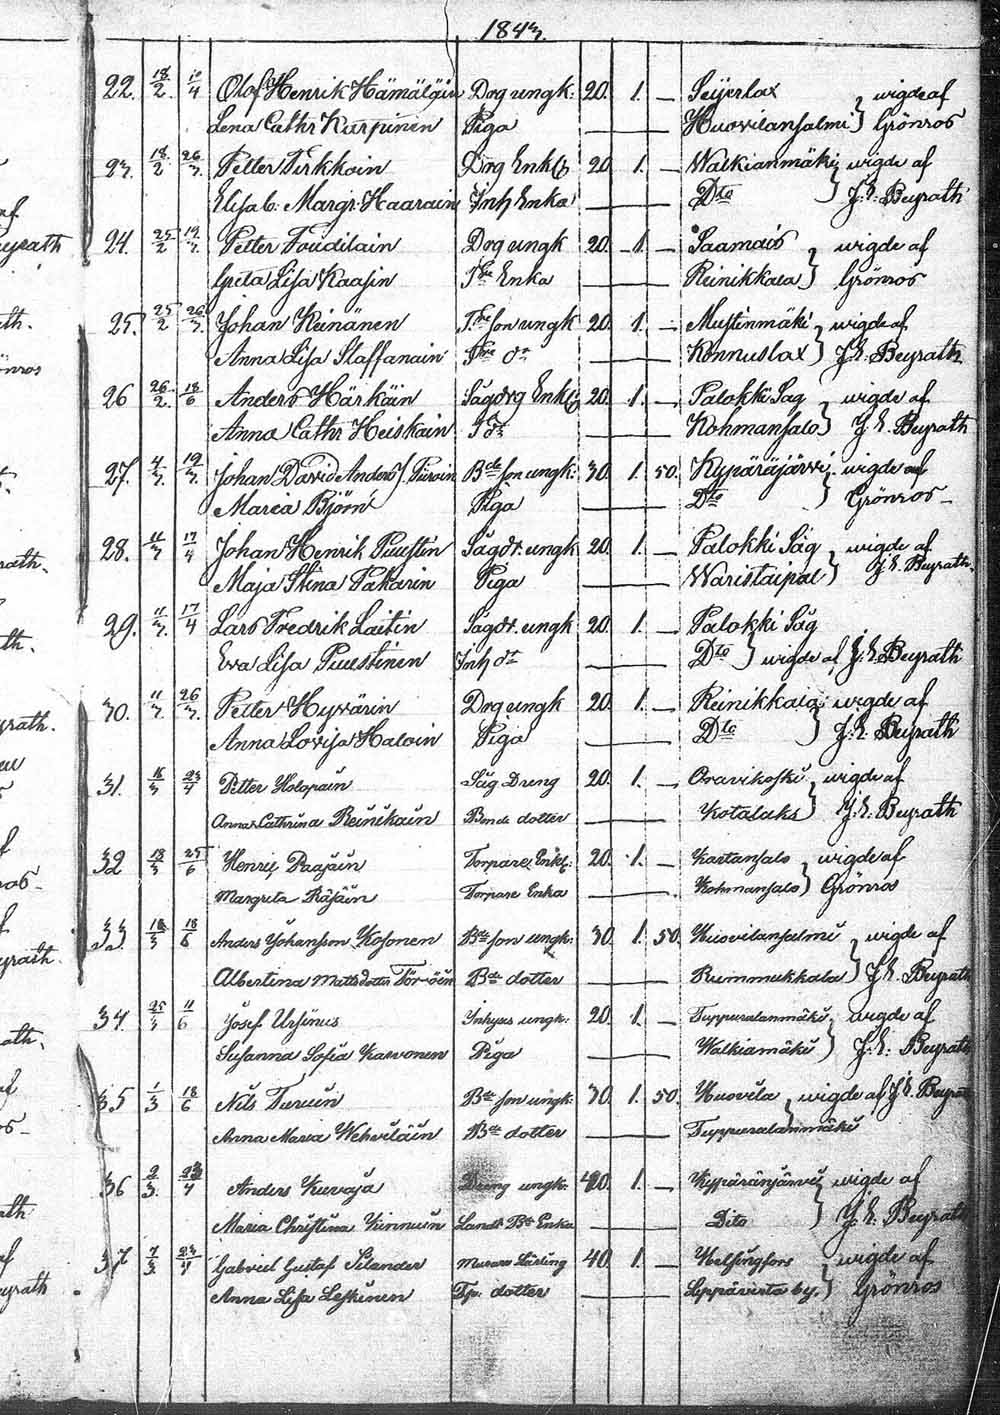 1843.
22. 18/2. 10/4 Olof Henrik Hämäläin Drg ungk: 20. 1. — Seijerlax } wigde af
Lena Cathr Karpinen Piga — Huovilansalmi } Grönros
23. 18/2 26/3. Petter Pirkkain Drg Enkl 20. 1. — Walkianmäki } wigde af
Elisab. Margr: Haarain Inh Enka — Dto } J. E. Beyrath
24. 25/2 19/3. Petter Toudilain Drg ungk 20. 1. — Saamais } wigde af
Greta Lisa Kaasin Tre Enka — Reinikkala } Grönros
25. 25/2 26/3. Johan Heinänen Tre son ungk 20. 1. — Mustinmäki } wigde af
Anna Lisa Staffanain Tre dr — Konnuslax } J. E. Beyrath
26 26/2. 18/6 Anders Härkäin Sågdrg Enkl 20. 1. — Palokki Såg } wigde af
Anna Cathr Heiskain T dr — Kohmansalo } J. E. Beyrath
27. 4/3 19/3. Johan David Anders s. Piirain Bde son ungk: 30. 1. 50. Kypäräjärvi } wigde af
Maria Björn Piga — Dto } Grönros
28. 11/3 17/4 Johan Henrik Puustin Sågdr. ungk 20. 1. — Palokki Såg } wigde af
Maja Stina Pakarin Piga — Waristaipal } J. E. Beyrath.
29. 11/3. 17/4 Lars Fredrik Laitin Sågdr. ungk 20. 1. — Palokki Såg
Eva Lisa Puustinen Inh dr — Dto } wigde af J. E. Beyrath
30. 11/3. 26/3. Petter Hyvärin Drg ungk 20. 1. — Reinikkala } wigde af
Anna Lovisa Haloin Piga — Dto } J. E. Beyrath
31. 16/3 23/4 Petter Holopain Såg Dreng 20. 1. — Oravikoski } wigde af
Anna Cathrina Reinikain Bonde dotter — Kotalaks } J. E. Beyrath
32 18/3 25/6 Henric Paasain Torpare Enkl: 20. 1. — Kartansalo } wigde af
Margreta Räsäin Torpare Enka — Kohmansalo } Grönros
33 18/3 18/6 Anders Johansson Kosonen Bde son ungk: 30. 1. 50. Huovilansalmi } wigde af
Albertina Mattsdotter Törröin Bde dotter — Rummukkala } J. E. Beyrath
34. 25/3 11/6 Josef Ursinus Inhyses ungk: 20. 1. — Tuppuralanmäki } wigde af
Susanna Sofia Karvonen Piga — Walkiamäki } J. E. Beyrath
35 1/3 18/6 Nils Turuin Bde son ungk: 30. 1. 50. Huovila } wigde af J. E. Beyrath
Anna Maria Wehviläin Bde dotter — Tuppuralanmäki
36 2/3. 23/4 Anders Kuvaja Dreng ungk: 20. 1. — Kypäränjärvi } wigde af
Maria Christina Kinnuin Landt Bde Enka — Dito } J. E. Beyrath
37 7/3 23/4 Gabriel Gustaf Silander Murare Lärling 40. 1. — Helsingfors } wigde af
Anna Lisa Leskinen Tp. dotter — Leppävirta by. } Grönros